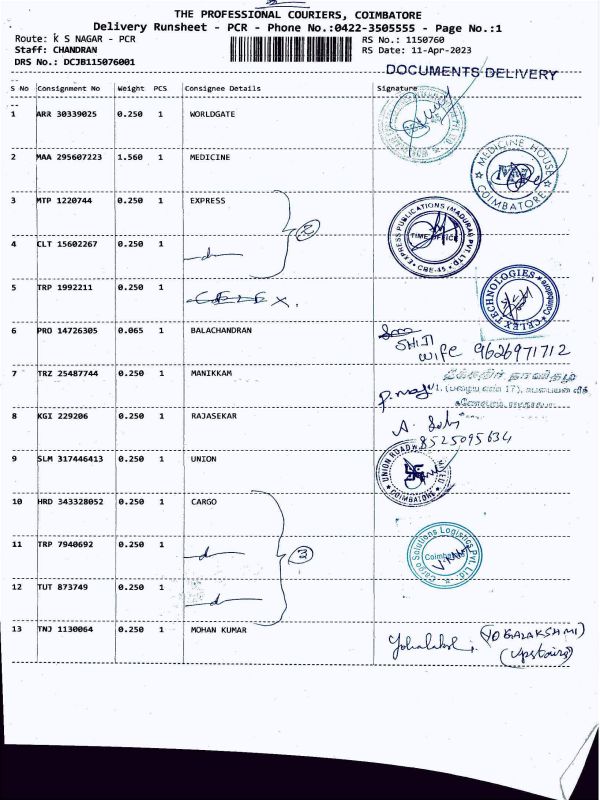 THE PROFESSIONAL COURIERS, COIMBATORE
Delivery Runsheet - PCR - Phone No.:0422-3505555 - Page No.:1
Route: K S NAGAR - PCR RS No.: 1150760
Staff: CHANDRAN RS Date: 11-Apr-2023
DRS No.: DCJB115076001
DOCUMENTS DELIVERY
S No Consignment No Weight PCS Consignee Details Signature
1 ARR 30339025 0.250 1 WORLDGATE
2 MAA 295607223 1.560 1 MEDICINE
MEDICINE HOUSE
COIMBATORE
3 MTP 1220744 0.250 1 EXPRESS
2
EXPRESS PUBLICATIONS (MADURAI) PVT. LTD.
TIME OFFICE
CBE-45
4 CLT 15602267 0.250 1
5 TRP 1992211 0.250 1
CELEX TECHNOLOGIES
Coimbatore
6 PRO 14726305 0.065 1 BALACHANDRAN
SHIJI
wife 9626971712
7 TRZ 25487744 0.250 1 MANIKKAM
8 KGI 229206 0.250 1 RAJASEKAR
8525095634
9 SLM 317446413 0.250 1 UNION
UNION ROADW
COIMBATORE
10 HRD 343328052 0.250 1 CARGO
11 TRP 7940692 0.250 1
3
Cargo Solutions Logistics Pvt. Ltd.
Coimbatore
12 TUT 873749 0.250 1
13 TNJ 1130064 0.250 1 MOHAN KUMAR
(YOGALAKSHMI)
(Upstairs)